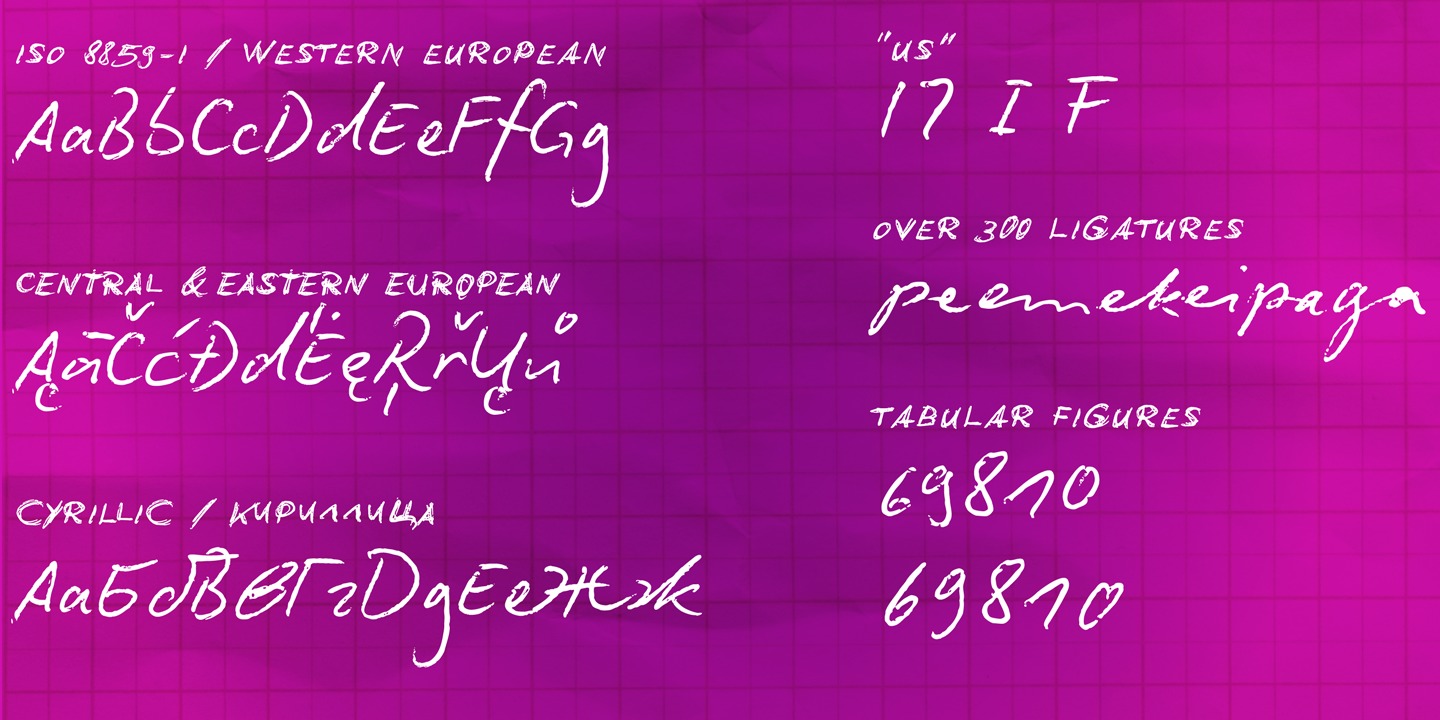 ISO 8859-1 / WESTERN EUROPEAN
AaBbCcDdEeFfGg
CENTRAL & EASTERN EUROPEAN
ĄāČćĐďĖęŖřŲů
CYRILLIC / КИРИЛЛИЦА
АаБбВвГгDgЕеЖж
"US"
17 I F
OVER 300 LIGATURES
peemekeipaga
TABULAR FIGURES
69810
69810